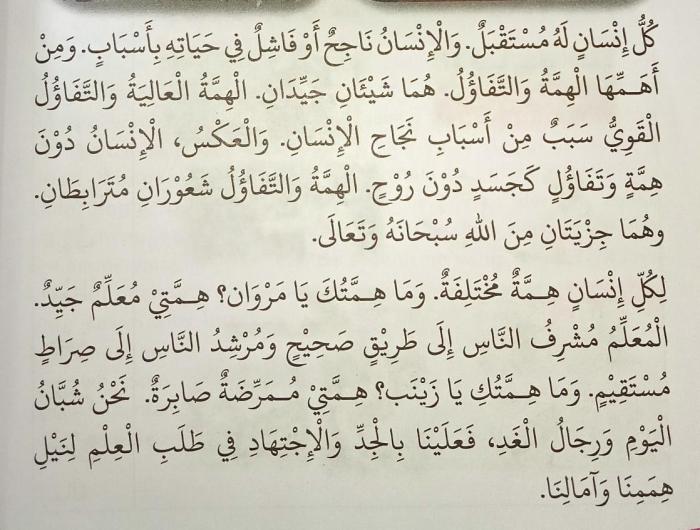 كُلُّ إِنْسَانٍ لَهُ مُسْتَقْبَلٌ. وَالْإِنْسَانُ نَاجِحٌ أَوْ فَاشِلٌ فِي حَيَاتِهِ بِأَسْبَابٍ. وَمِنْ
أَهَـمِّهَا الْهِمَّةُ وَالتَّفَاؤُلُ. هُمَا شَيْئَانِ جَيِّدَانِ. الْهِمَّةُ الْعَالِيَةُ وَالتَّفَاؤُلُ
الْقَوِيُّ سَبَبٌ مِنْ أَسْبَابِ نَجَاحِ الْإِنْسَانِ. وَالْعَكْسُ، الْإِنْسَانُ دُوْنَ
هِمَّةٍ وَتَفَاؤُلٍ كَجَسَدٍ دُوْنَ رُوْحٍ. الْهِمَّةُ وَالتَّفَاؤُلُ شَعُوْرَانِ مُتَرَابِطَانِ.
وهُمَا جِزْيَتَانِ مِنَ اللهِ سُبْحَانَهُ وَتَعَالَى.
لِكُلِّ إِنْسَانٍ هِـمَّةٌ مُخْتَلِفَةٌ. وَمَا هِـمَّتُكَ يَا مَرْوَان؟ هِـمَّتِيْ مُعَلِّمٌ جَيِّدٌ.
الْمُعَلِّمُ مُشْرِفُ النَّاسِ إِلَى طَرِيْقٍ صَحِيْحٍ وَمُرْشِدُ النَّاسِ إِلَى صِرَاطٍ
مُسْتَقِيْمٍ. وَمَا هِـمَّتُكِ يَا زَيْنَب؟ هِـمَّتِيْ مُـمَرِّضَةٌ صَابِرَةٌ. نَحْنُ شُبَّانُ
الْيَوْمِ وَرِجَالُ الْغَدِ، فَعَلَيْنَا بِالْجِدِّ وَالْإِجْتِهَادِ فِي طَلَبِ الْعِلْمِ لِنَيْلِ
هِمَمِنَا وَآمَالِنَا.